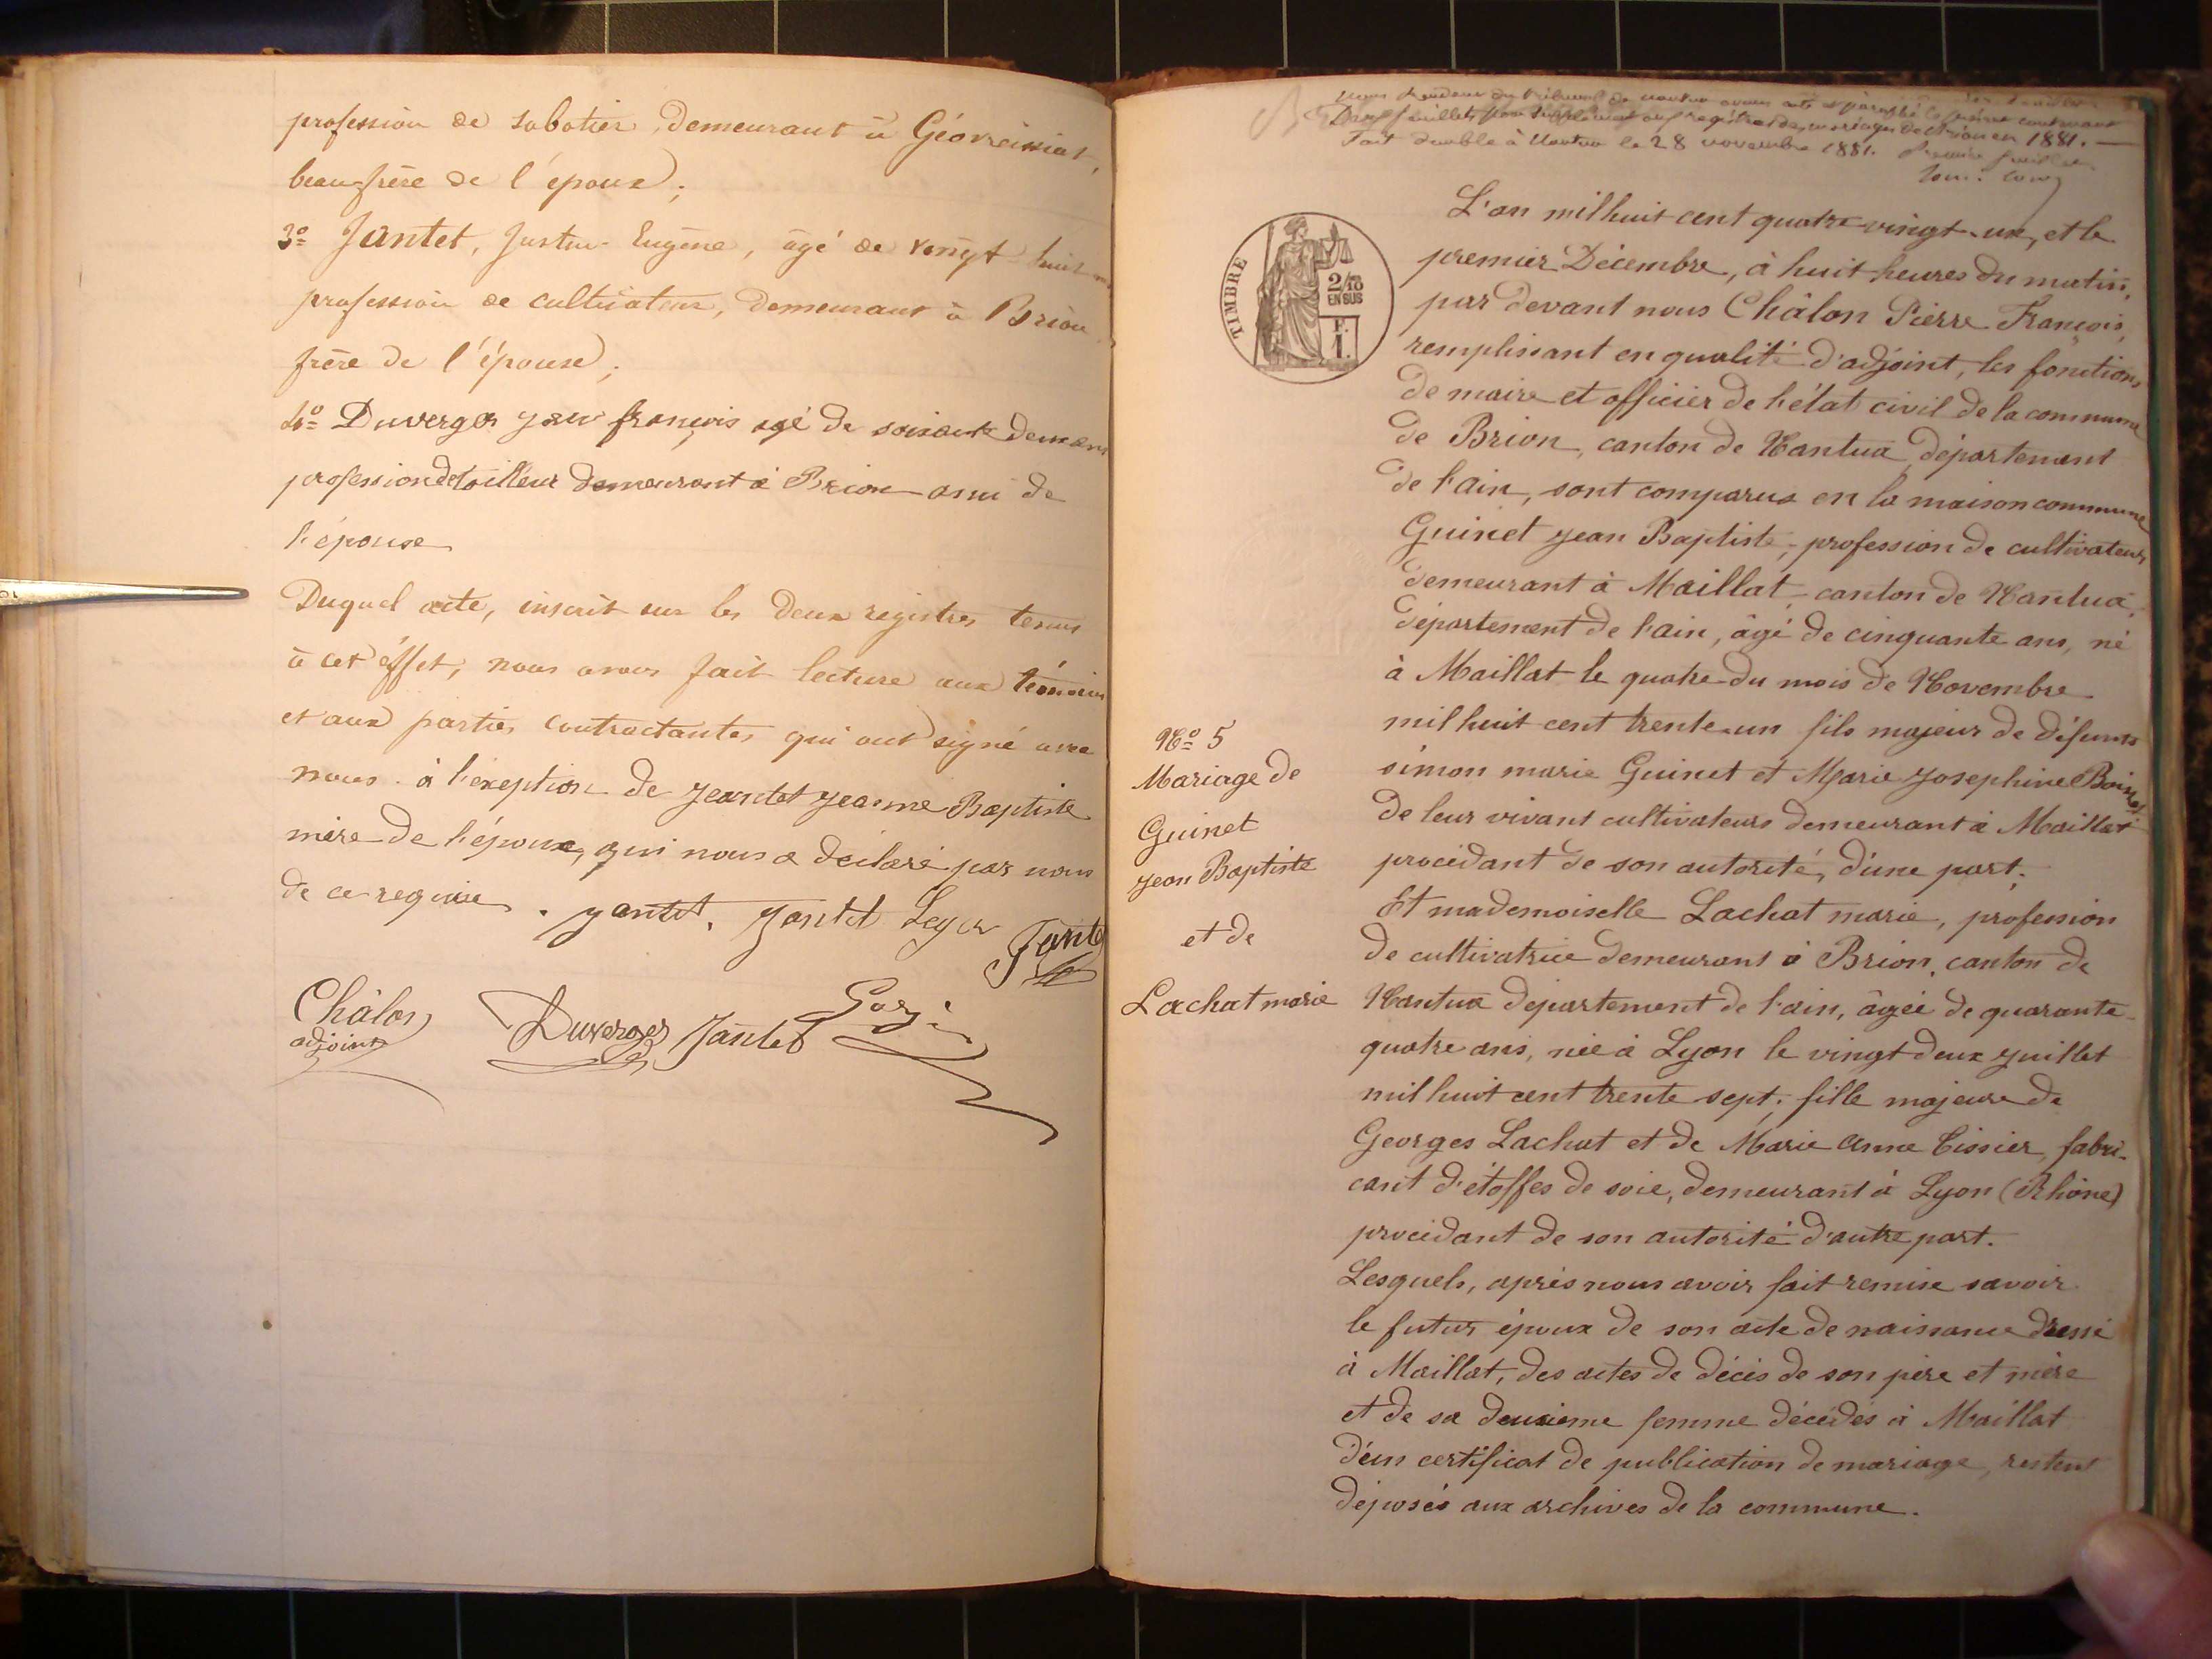 profession de sabotier, demeurant à Géovreissiat,
beau-frère de l'époux;
3º Jantet, Justin Eugène, âgé de vingt huit
profession de cultivateur, demeurant à Brion
frère de l'épouse;
4º Duverger Jean françois agé de soixante deux ans
profession de tailleur demeurant à Brion ami de
l'épouse
Duquel acte, inscrit sur les deux registres tenus
à cet effet, nous avons fait lecture aux témoins
et aux parties contractantes qui ont signé avec
nous. à l'exeption de Jeantet Jeanne Baptiste
mère de l'époux, qui nous a déclaré par nous
de ce requise. Jantet. Jantet Leger
Jantet
Châlon
adjoint
Duverger Jantet
2/10
EN SUS
TIMBRE
F.
1.
feuillets pour supplément au registre des mariages de Brion en 1881.
Fait double à Nantua le 28 novembre 1881.
L'an mil huit cent quatre vingt-un, et le
premier Décembre, à huit heures du matin,
par devant nous Châlon Pierre François,
remplissant en qualité d'adjoint, les fonctions
de maire et officier de l'état civil de la commune
de Brion, canton de Nantua département
de l'ain, sont comparus en la maison commune
Guinet Jean Baptiste, profession de cultivateur
demeurant à Maillat canton de Nantua,
département de l'ain, âgé de cinquante ans, né
à Maillat le quatre du mois de Novembre
mil huit cent trente-un fils majeur de défunts
simon marie Guinet et Marie Josephine
de leur vivant cultivateurs demeurant à Maillat
procédant de son autorité, d'une part;
Et mademoiselle Lachat marie, profession
de cultivatrice demeurant à Brion, canton de
Nantua département de l'ain, âgée de quarante-
quatre ans, née à Lyon le vingt deux juillet
mil huit cent trente sept; fille majeure de
Georges Lachat et de Marie anne Tissier, fabri-
cant d'étoffes de soie, demeurant à Lyon (Rhône)
procédant de son autorité d'autre part.
Lesquels, après nous avoir fait remise savoir
le futur époux de son acte de naissance dressé
à Maillat, des actes de décès de son père et mère
et de sa deuxième femme décédés à Maillat
d'un certificat de publication de mariage, restent
déposés aux archives de la commune.
Nº 5
Mariage de
Guinet
Jean Baptiste
et de
Lachat marie